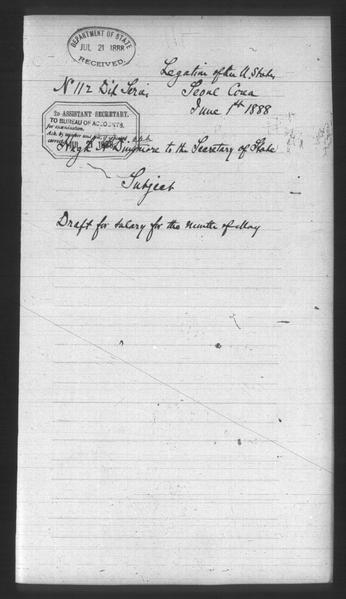 DEPARTMENT OF STATE
JUL 21 1888
RECEIVED.
Legation of the U. States
Nº 112 Dip. Series
Seoul Corea
June 1st 1888
2D ASSISTANT SECRETARY.
TO BUREAU OF ACCOUNTS.
for examination.
JUL 21 1888
Hugh A. Dinsmore to the Secretary of State
Subject
Draft for salary for the month of May